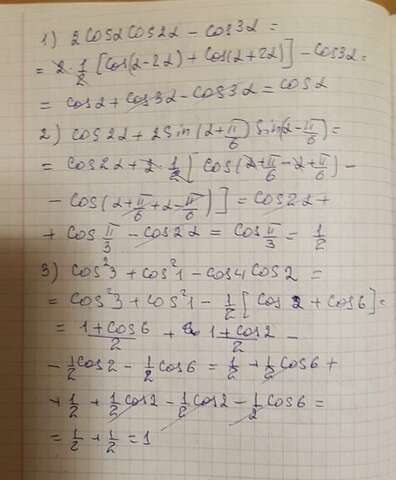 1) 2cosαcos2α - cos3α =
= 2·1/2 [cos(α-2α) + cos(α+2α)] - cos3α =
= cosα + cos3α - cos3α = cosα
2) cos2α + 2sin(α+π/6) sin(α-π/6) =
= cos2α + 2·1/2 [cos(α+π/6-α+π/6) -
- cos(α+π/6+α-π/6)] = cos2α +
+ cos π/3 - cos2α = cos π/3 = 1/2
3) cos²3 + cos²1 - cos4cos2 =
= cos²3 + cos²1 - 1/2 [cos2 + cos6] =
= (1+cos6)/2 + (1+cos2)/2 -
- 1/2 cos2 - 1/2 cos6 = 1/2 + 1/2 cos6 +
+ 1/2 + 1/2 cos2 - 1/2 cos2 - 1/2 cos6 =
= 1/2 + 1/2 = 1